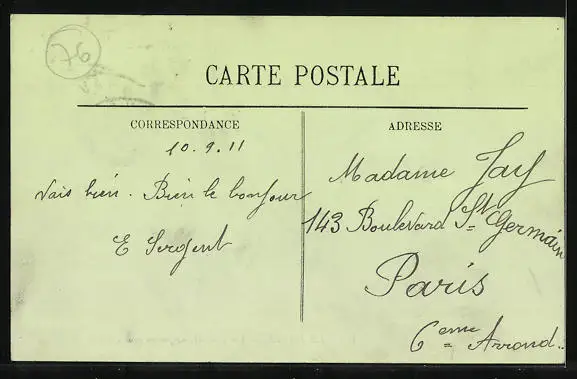 76
CARTE POSTALE
CORRESPONDANCE
10.9.11
Vais bien. Bien le bonjour
E Sergent
ADRESSE
Madame Jay
143 Boulevard St Germain
Paris
6eme Arrond.